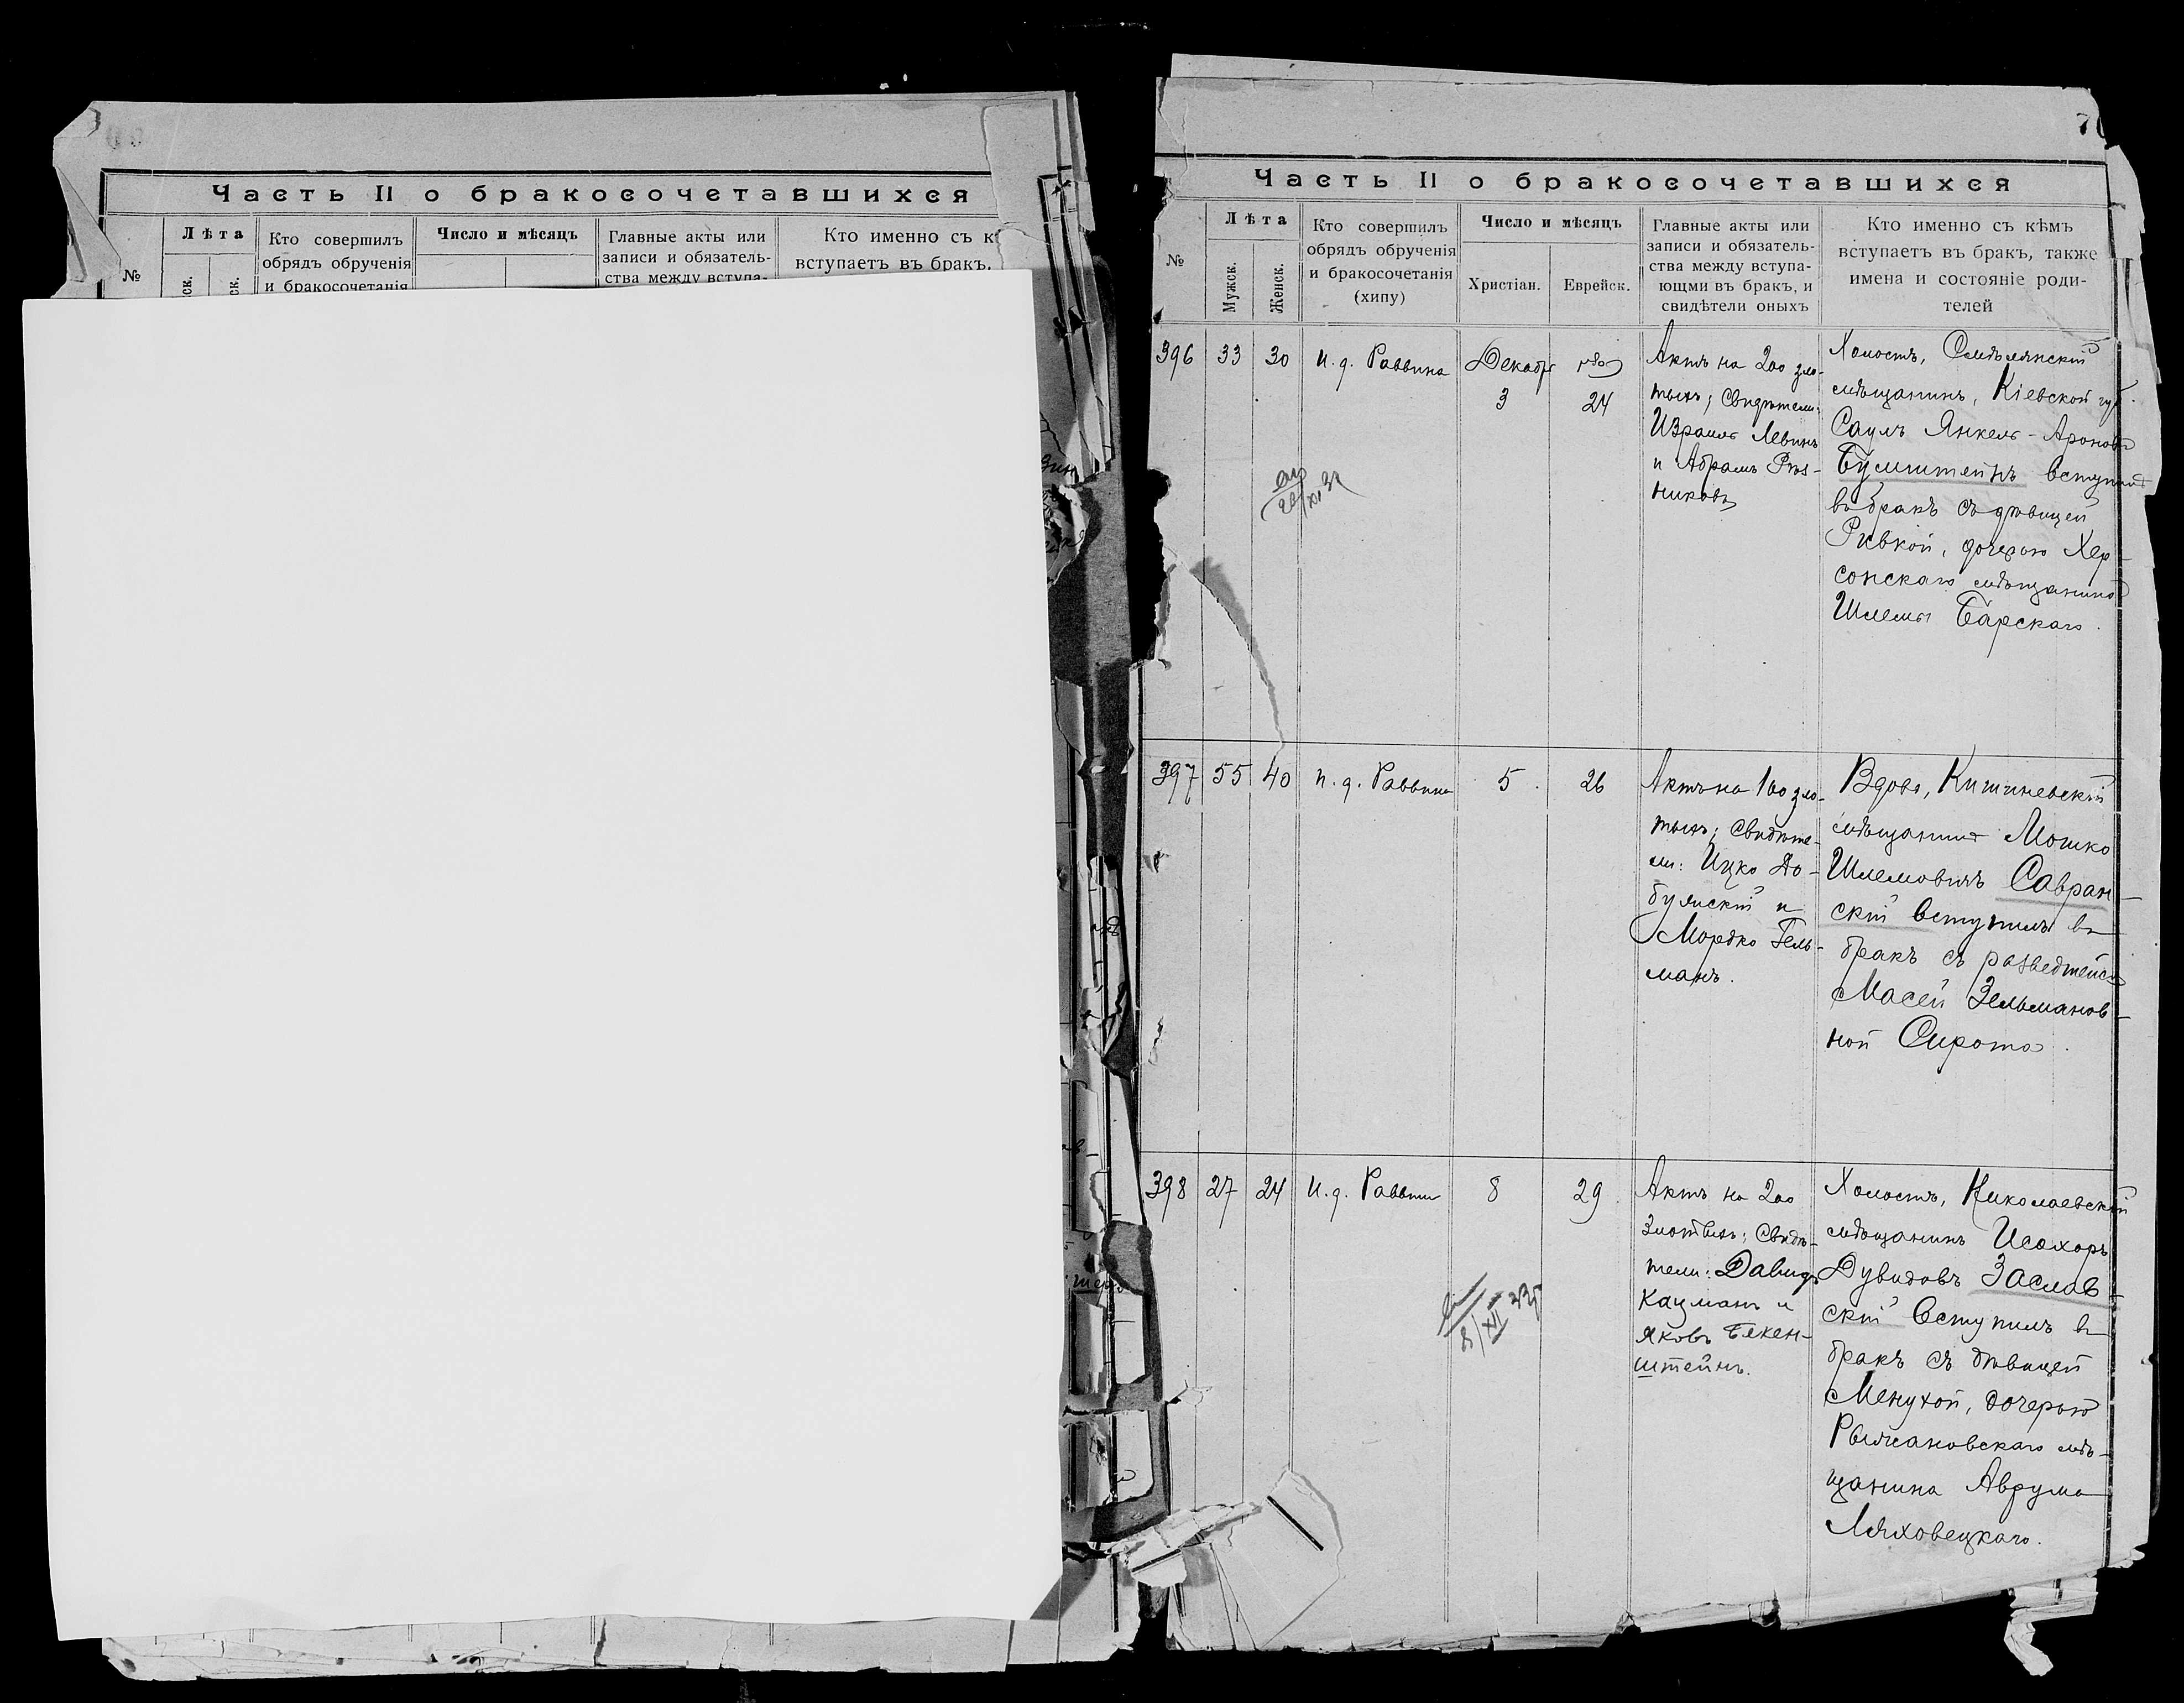 Часть II о бракосочетавшихся
№
Лѣта
Кто совершилъ
обрядъ обрученія
и бракосочетанія
Число и мѣсяцъ
Главные акты или
записи и обязатель-
ства между вступа-
Кто именно съ к
вступаетъ въ бракъ,
ск.
ск.
Часть II о бракосочетавшихся
№
Лѣта
Мужск.
Женск.
Кто совершилъ
обрядъ обрученія
и бракосочетанія
(хипу)
Число и мѣсяцъ
Христіан.
Еврейск.
Главные акты или
записи и обязатель-
ства между вступа-
ющми въ бракъ, и
свидѣтели оныхъ
Кто именно съ кѣмъ
вступаетъ въ бракъ, также
имена и состояніе роди-
телей
396
33
30
И. д. Раввина
Декабр
3
24
Актъ на 200 зло-
тыхъ; Свидѣтели:
Израиль Левинъ
и Абрамъ
никовъ
Холостъ, Смѣлянскій
мѣщанинъ, Кіевской губ.
Саулъ Янкель-Ароновъ
Бумштейнъ вступилъ
въ бракъ съ дѣвицей
Ривкой, дочерью Хер-
сонскаго мѣщанина
Шлемы Барскаго.
397
55
40
И. д. Раввина
5
26
Актъ на 100 зло-
тыхъ; Свидѣте-
ли: Ицко До-
булскій и
Мордко Гель-
манъ.
Вдовъ, Кишиневскій
мѣщанинъ Мошко
Шлемовичъ Савран-
скій вступилъ въ
бракъ съ разведшейся
Масей Зельманов-
ной Сирота.
398
27
24
И. д. Раввина
8
29
Актъ на 200
Злотыхъ; Свидѣ-
тели: Давидъ
Кацманъ и
Яковъ Бекен-
штейнъ.
Холостъ, Николаевскій
мѣщанинъ Исохоръ
Дувидовъ Заслав-
скій вступилъ въ
бракъ съ дѣвицей
Менухой, дочерью
Рыжановскаго мѣ-
щанина Аврума
Ляховецкаго.